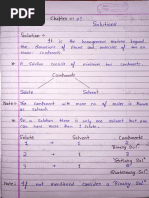 Chapter no. 01
Solutions
Solution :-
It is the homogeneous mixture beyond
the dimensions of
there constituents.
A Solution consist of minimum two constituents
Constituents
Solute
Solvent
Note:- The constituent with more no. of moles is known
as solvent.
Note:- In a Solution there is only one solvent but you
can have more than 1 solute.
Solute Solvent Constituents
1 + 1 2
Binary Solⁿ
2 + 1 3
Tertiary Solⁿ
3 + 1 4
Quaternary Solⁿ
Note:- If not mentioned consider a Binary Solⁿ